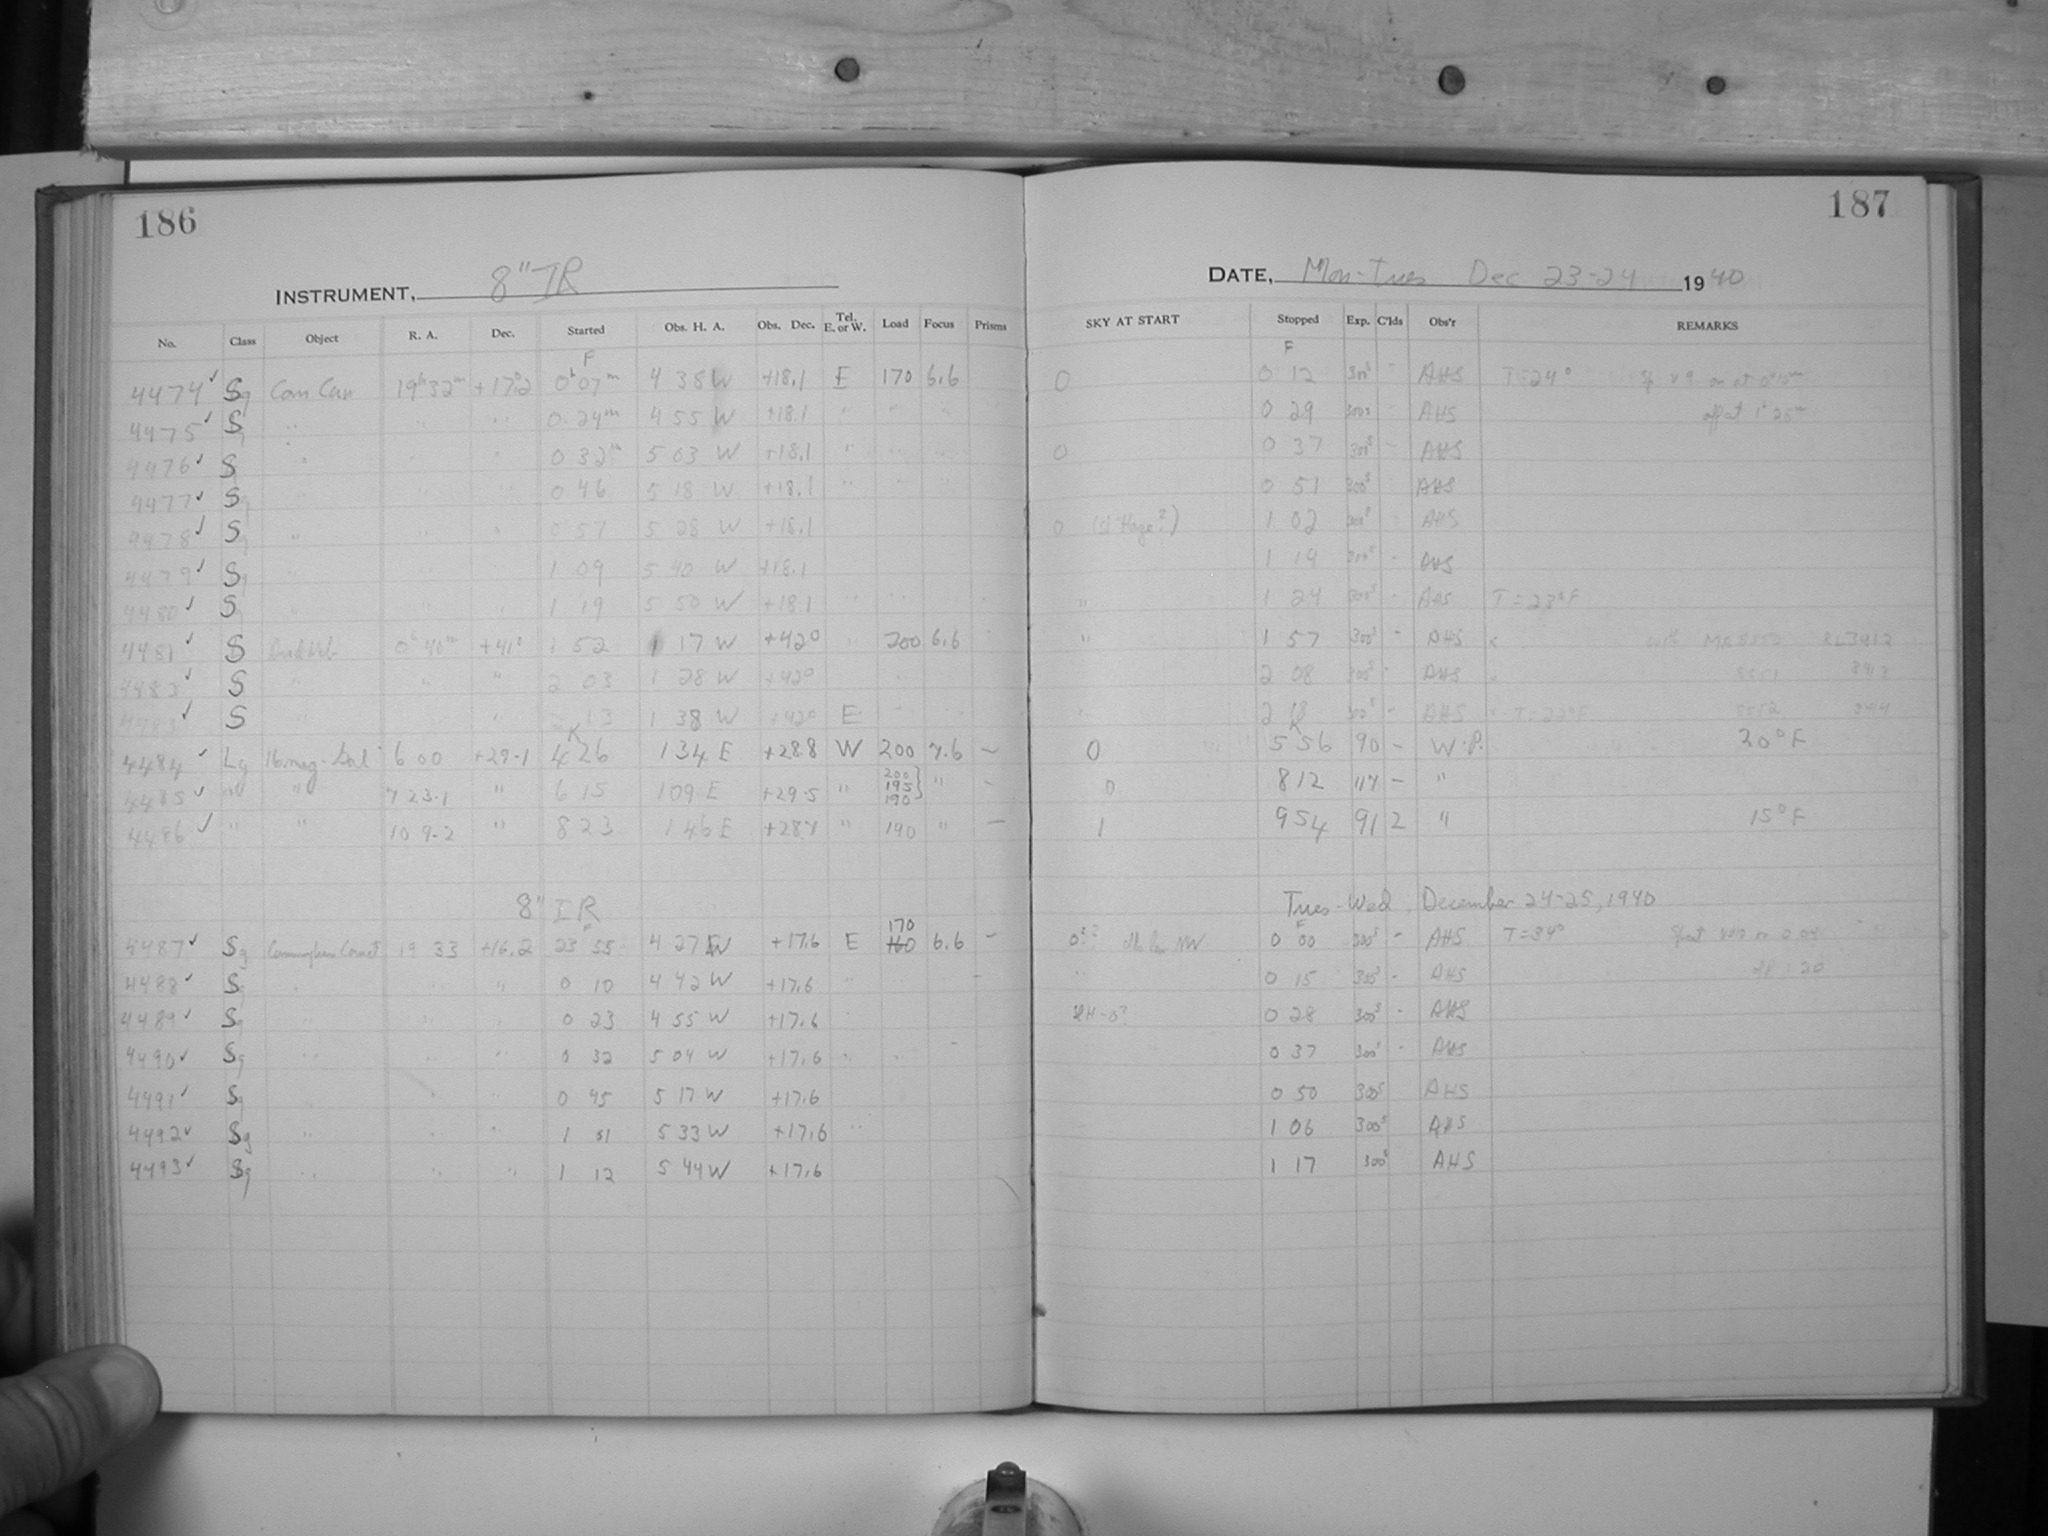 186
INSTRUMENT, 8" IR
No. Class Object R. A. Dec. Started Obs. H. A. Obs. Dec. Tel. E. or W. Load Focus Prisms
F
4474 ✓ Sg 19h 32m +17°2 0h 07m 4 38 W +18.1 E 170 6.6
4475 ✓ Sg " " " 0 24m 4 55 W +18.1 " " "
4476 ✓ S " " " 0 32m 5 03 W +18.1 " " "
4477 ✓ Sg " " 0 46 5 18 W +18.1 " " "
4478 ✓ Sg " " " 0 57 5 28 W +18.1
4479 ✓ Sg " " 1 09 5 40 W +18.1
4480 ✓ Sg " " " 1 19 5 50 W +18.1 " " "
4481 ✓ S 0h 40m +41° 1 52 1 17 W +420 " 200 6.6
4482 ✓ S " " " 2 03 1 28 W +420 "
4483 ✓ S " " 2 13 1 38 W +420 E " "
K
4484 ✓ Lg 16 mag. 6 00 +29.1 4 26 1 34 E +28.8 W 200 7.6 –
4485 ✓ " " 7 23.1 " 6 15 1 09 E +29.5 " 200 195 190 } " –
4486 ✓ " " 10 9.2 " 8 23 1 46 E +28.7 " 190 " –
8" IR
F
4487 ✓ Sg Cunningham Comet 19 33 +16.2 23 55 4 27 W +17.6 E 170 160 6.6 –
4488 ✓ Sg " " " 0 10 4 42 W +17.6 " " –
4489 ✓ Sg " " " 0 23 4 55 W +17.6 "
4490 ✓ Sg " " " 0 32 5 04 W +17.6 " " –
4491 ✓ Sg " " " 0 45 5 17 W +17.6
4492 ✓ Sg " " " 1 01 5 33 W +17.6 "
4493 ✓ Sg " " " 1 12 5 44 W +17.6
187
DATE, Mon-Tues Dec 23-24 1940
SKY AT START Stopped Exp. C'lds Obs'r REMARKS
F
0 0 12 300s - AHS T=24° on at 0h10m
0 29 300s AHS off at 1h 25m
0 0 37 300s – AHS
0 51 300s AHS
0 1 02 300s AHS
1 14 300s - AHS
" 1 24 300s - AHS T=23°F
" 1 57 300s - AHS with MC8550 RL3412
2 08 300s - AHS 8551 3413
2 18 300s - AHS T=22°F 8552 3414
K
0 5 56 90 – W.P. 20°F
0 8 12 117 – "
1 9 54 91 2 " 15°F
Tues-Wed, December 24-25, 1940
F
NW 0 00 300s - AHS T=34°
" 0 15 300s - AHS
0 28 300s - AHS
0 37 300s - AHS
0 50 300s AHS
1 06 300s AHS
1 17 300s AHS